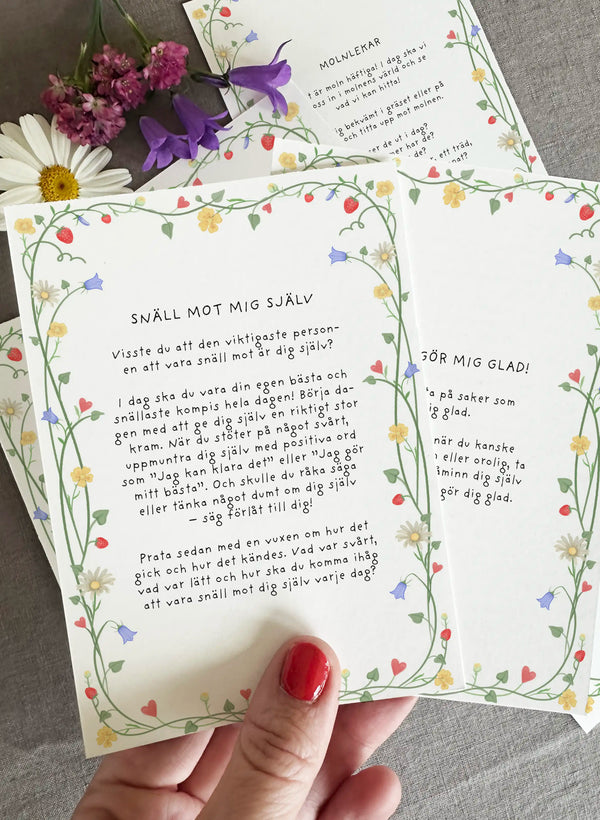 MOLNLEKAR
t är moln häftiga! I dag ska vi
oss in i molnens värld och se
vad vi kan hitta!
ig bekvämt i gräset eller på
och titta upp mot molnen.
er de ut i dag?
mer har de?
ett träd,
SNÄLL MOT MIG SJÄLV
Visste du att den viktigaste person-
en att vara snäll mot är dig själv?
I dag ska du vara din egen bästa och
snällaste kompis hela dagen! Börja da-
gen med att ge dig själv en riktigt stor
kram. När du stöter på något svårt,
uppmuntra dig själv med positiva ord
som "Jag kan klara det" eller "Jag gör
mitt bästa". Och skulle du råka säga
eller tänka något dumt om dig själv
– säg förlåt till dig!
Prata sedan med en vuxen om hur det
gick och hur det kändes. Vad var svårt,
vad var lätt och hur ska du komma ihåg
att vara snäll mot dig själv varje dag?
GÖR MIG GLAD!
ta på saker som
ig glad.
när du kanske
n eller orolig, ta
åminn dig själv
gör dig glad.